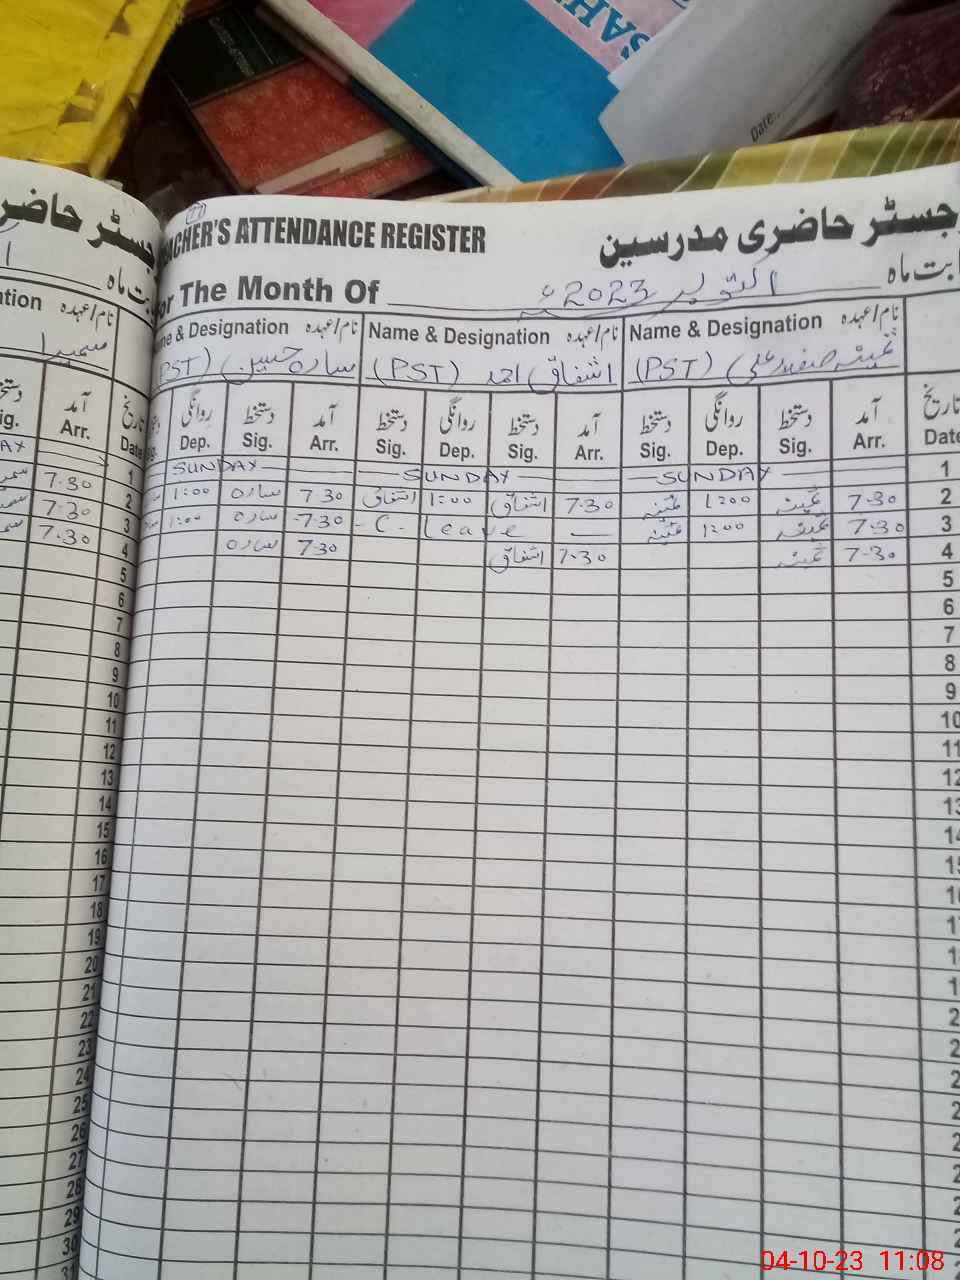 SAH
Date:
رجسٹر حاضری
TEACHER'S ATTENDANCE REGISTER رجسٹر حاضری مدرسین
بابت ماہ
For The Month Of اکتوبر 2023ء بابت ماہ
نام/عہدہ
Name & Designation نام/عہدہ Name & Designation نام/عہدہ Name & Designation نام/عہدہ
سارہ حسین (PST) اشفاق احمد (PST) (PST)
دستخط آمد تاریخ روانگی دستخط آمد دستخط روانگی دستخط آمد دستخط روانگی دستخط آمد تاریخ
Sig. Arr. Date Dep. Sig. Arr. Sig. Dep. Sig. Arr. Sig. Dep. Sig. Arr. Date
1 SUNDAY SUNDAY SUNDAY 1
7.30 2 1:00 سارہ 7.30 اشفاق 1:00 اشفاق 7.30 1:00 7.30 2
7.30 3 1:00 سارہ 7.30 C. Leave — 1:00 7.30 3
7.30 4 سارہ 7.30 اشفاق 7.30 7.30 4
5 5
6 6
7 7
8 8
9 9
10 10
11 11
12 12
13 13
14 14
15 15
16
17
18
19
20
21
22
23
24
25
26
27
28
29
30
31
04-10-23 11:08